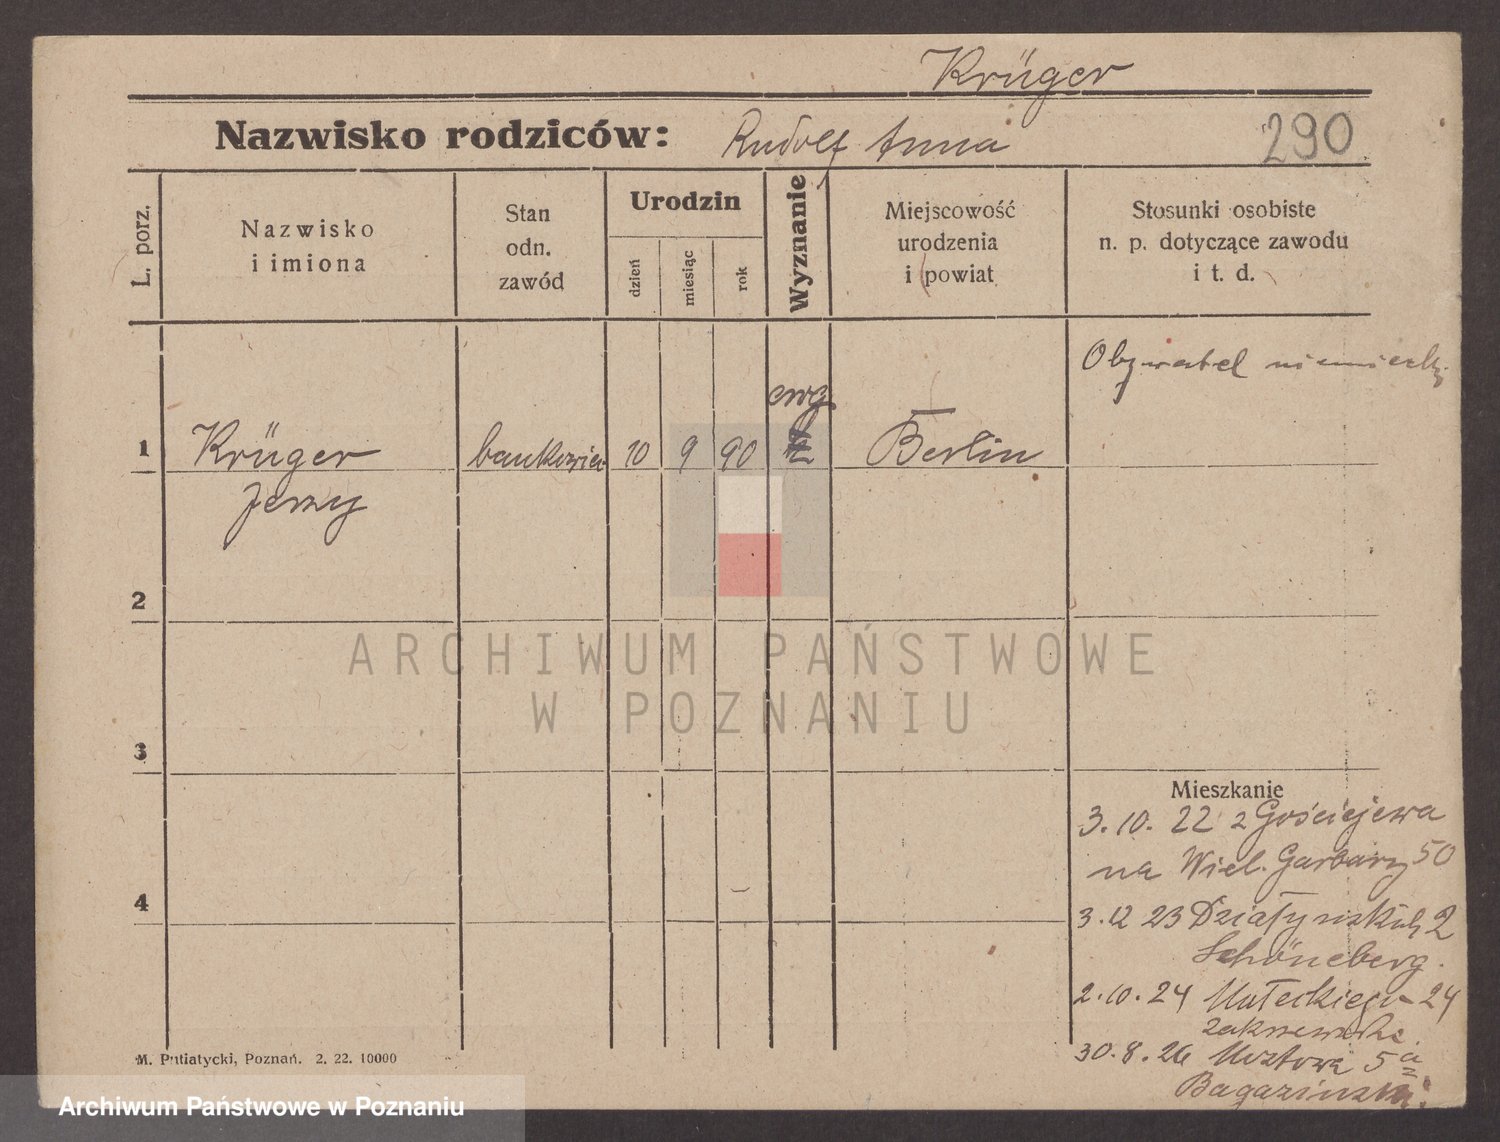 Krüger
Nazwisko rodziców: Rudolf Anna 290
L. porz.
Nazwisko
i imiona
Stan
odn.
zawód
Urodzin
dzień
miesiąc
rok
Wyznanie
Miejscowość
urodzenia
i powiat
Stosunki osobiste
n. p. dotyczące zawodu
i t. d.
Obywatel niemiecki
ewg
1 Krüger bankowiec 10 9 90 Berlin
Jerzy
2
ARCHIWUM PAŃSTWOWE
W POZNANIU
3
Mieszkanie
3.10. 22 z Gościejewa
na Wiel. Garbary 50
4
3.12 23 Działyńskich 2
Schöneberg.
2.10.24 Małeckiego 24
Zakrzewska.
30.8.26 Mostowa 5a
Bagazinski
M. Putiatycki, Poznań. 2. 22. 10000
Archiwum Państwowe w Poznaniu